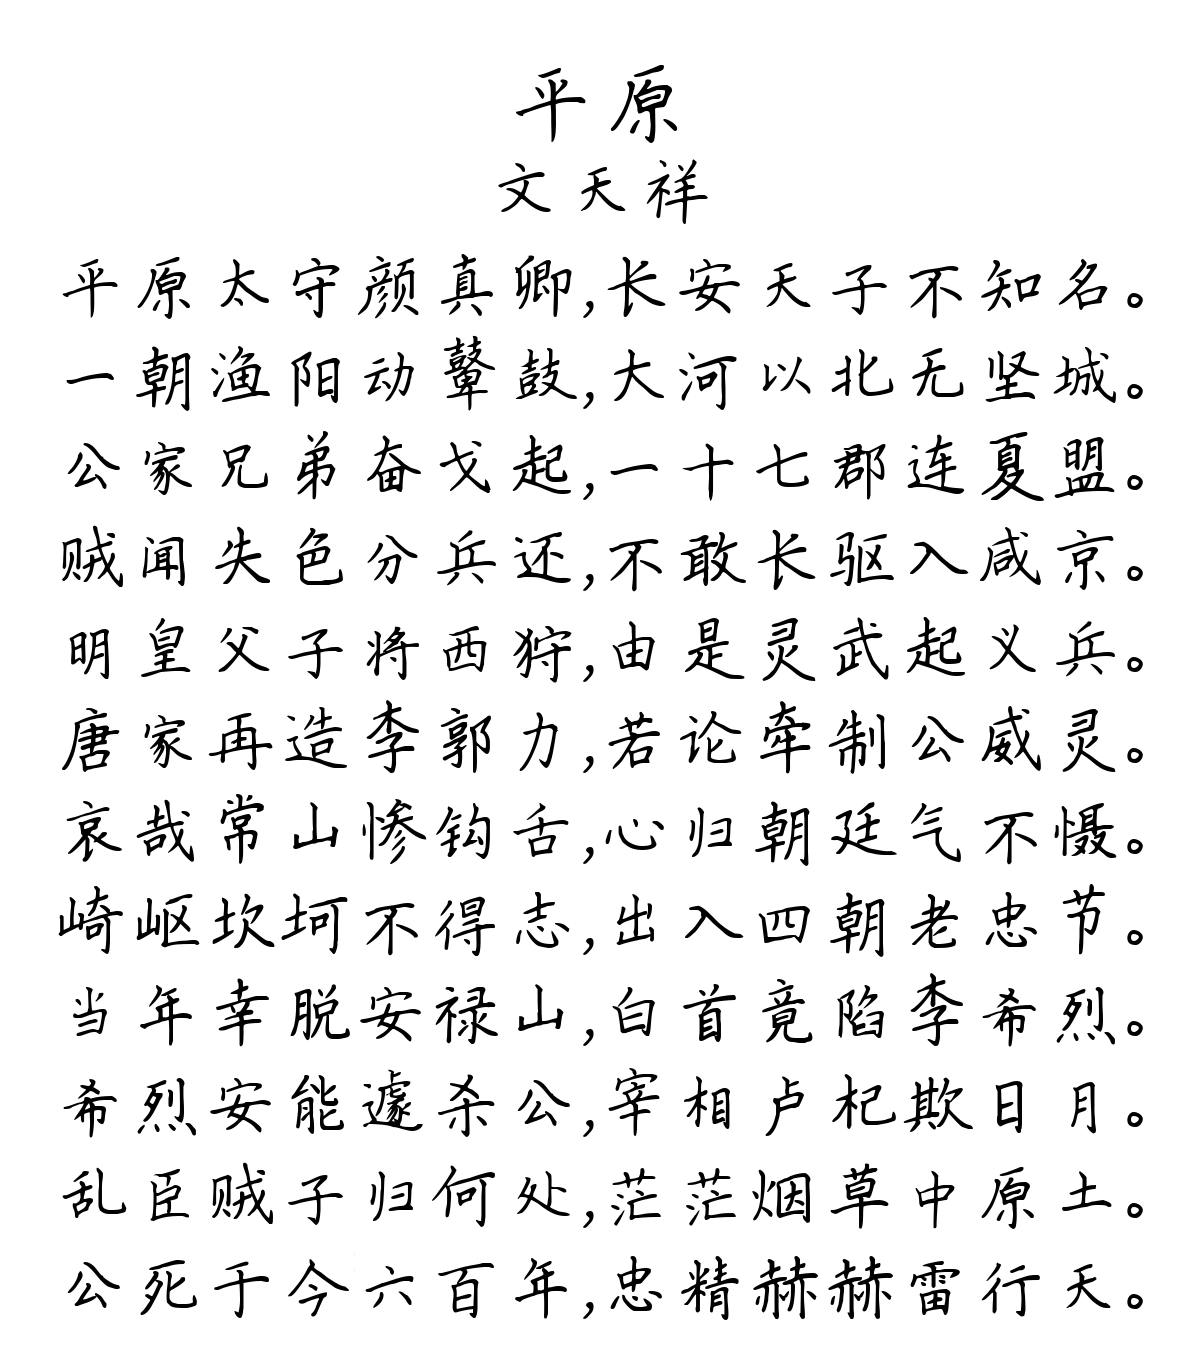 平原
文天祥
平原太守颜真卿,长安天子不知名。
一朝渔阳动鼙鼓,大河以北无坚城。
公家兄弟奋戈起,一十七郡连夏盟。
贼闻失色分兵还,不敢长驱入咸京。
明皇父子将西狩,由是灵武起义兵。
唐家再造李郭力,若论牵制公威灵。
哀哉常山惨钩舌,心归朝廷气不慑。
崎岖坎坷不得志,出入四朝老忠节。
当年幸脱安禄山,白首竟陷李希烈。
希烈安能遽杀公,宰相卢杞欺日月。
乱臣贼子归何处,茫茫烟草中原土。
公死于今六百年,忠精赫赫雷行天。